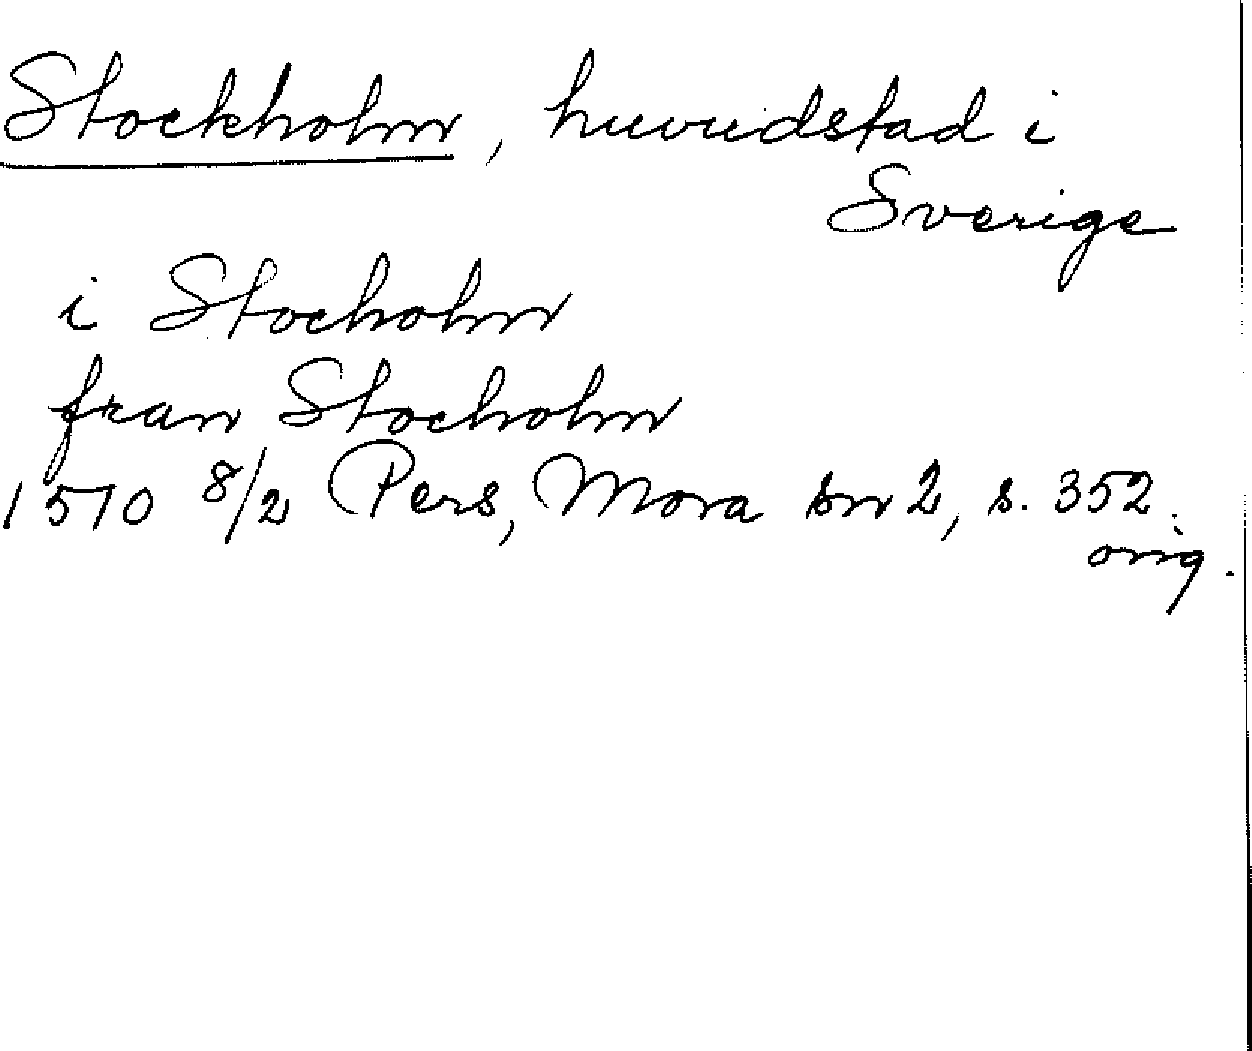 Stockholm, huvudstad i
Sverige
i Stocholm
fran Stocholm
1510 8/2 Pers, Mora sn 2, s. 352.
orig.